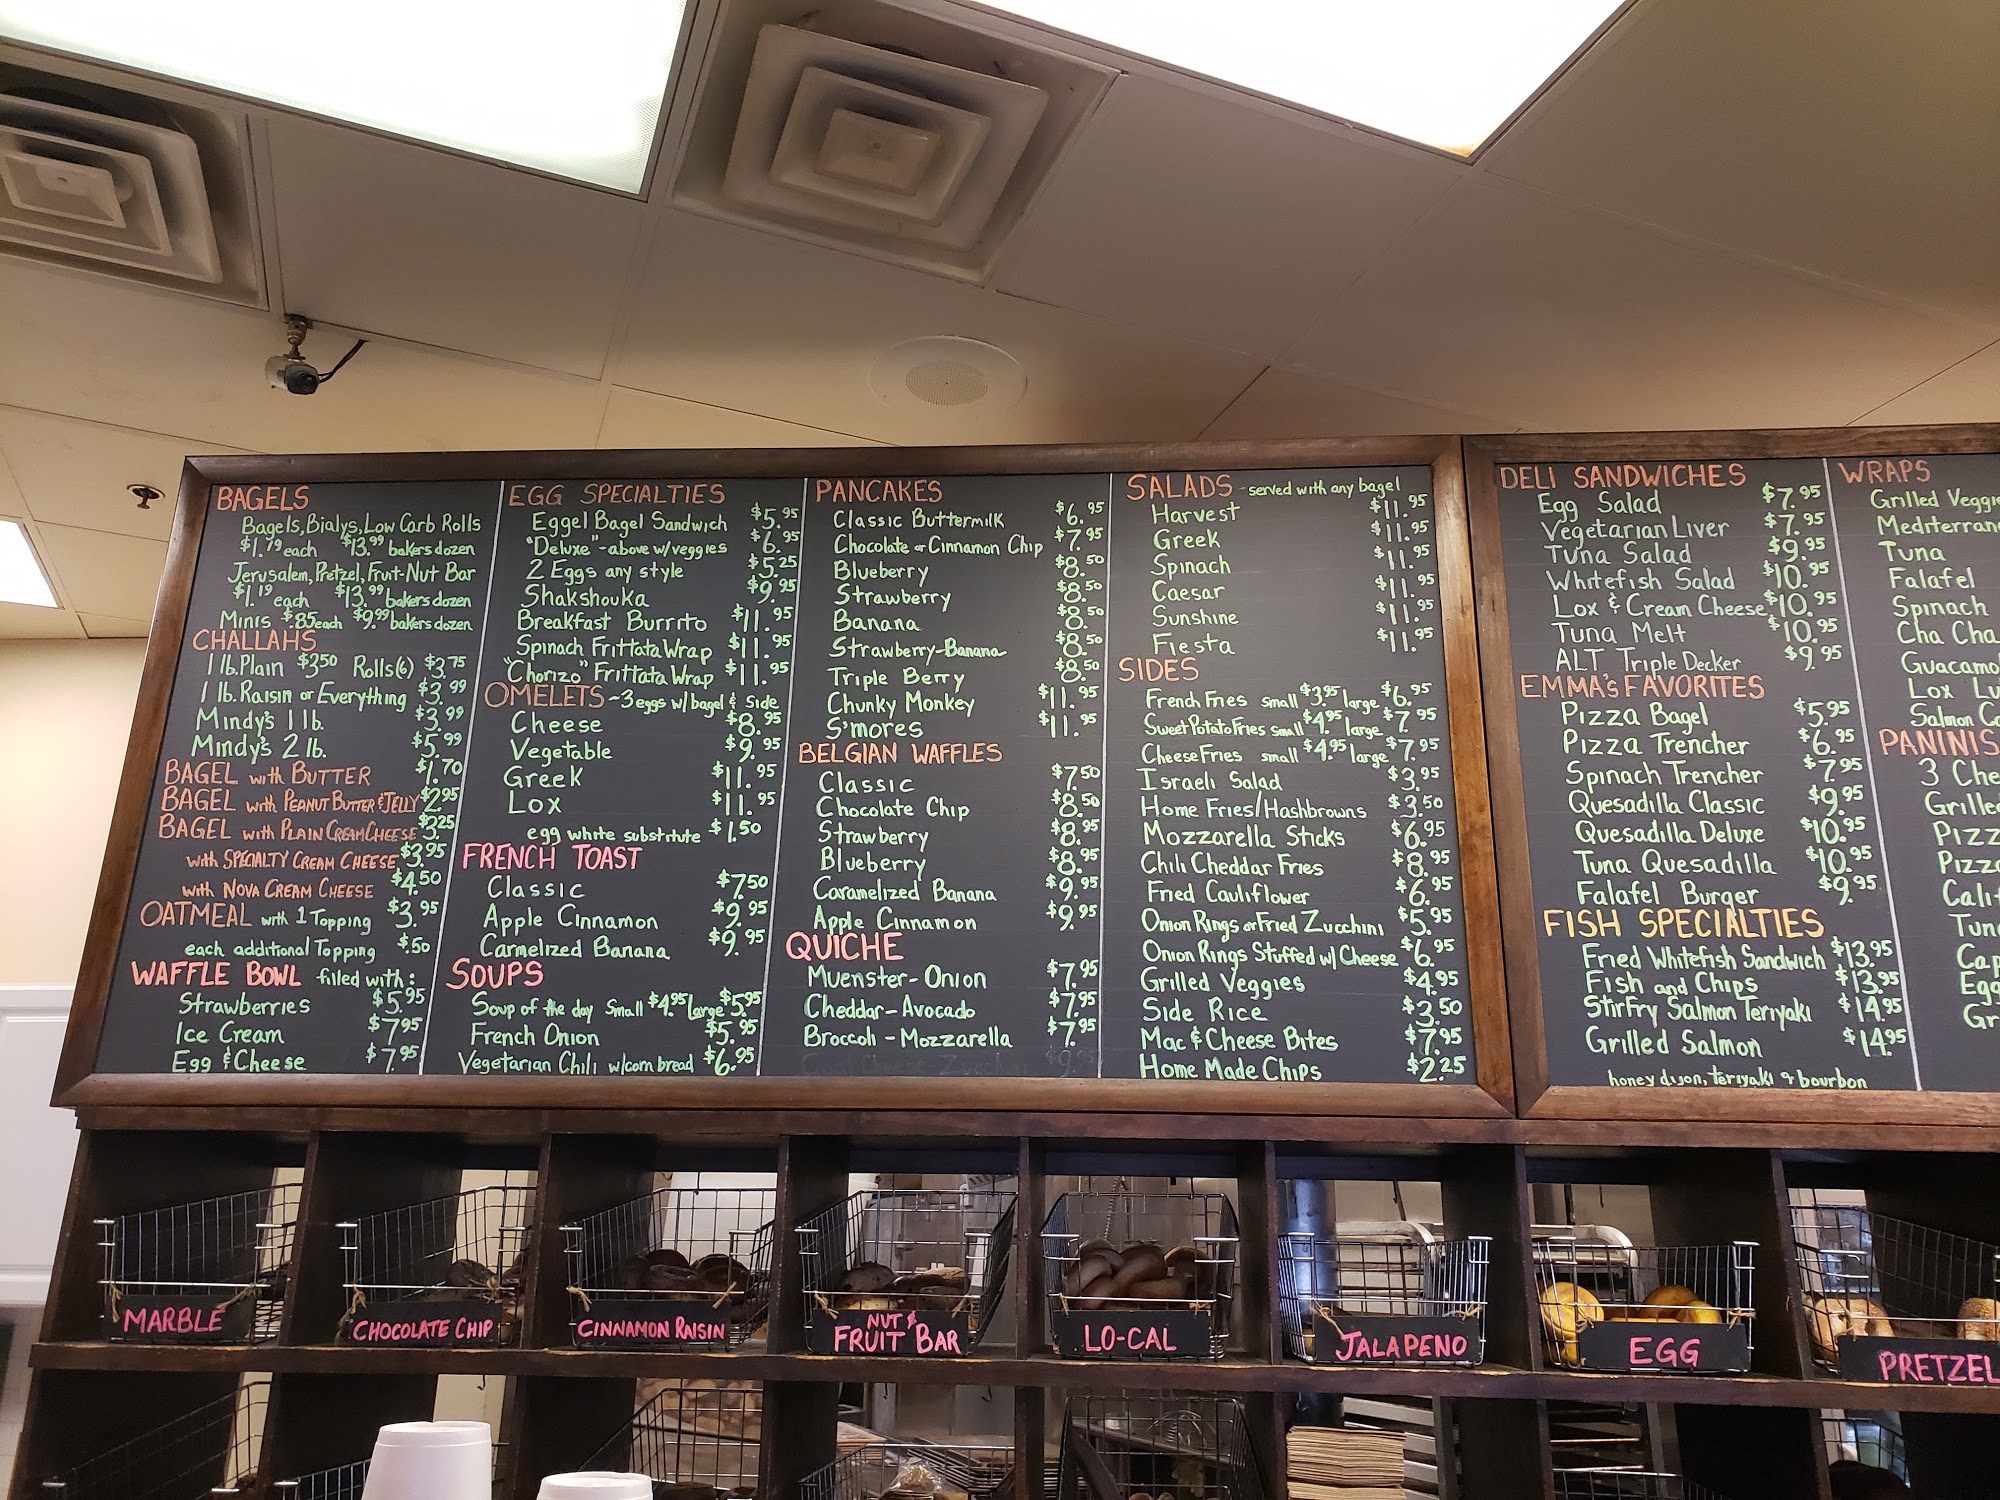 BAGELS
Bagels, Bialys, Low Carb Rolls
$1.19 each $13.99 bakers dozen
Jerusalem, Pretzel, Fruit-Nut Bar
$1.19 each $13.99 bakers dozen
Minis $.85 each $9.99 bakers dozen
CHALLAHS
1 lb. Plain $3.50 Rolls (6) $3.75
1 lb. Raisin or Everything $3.99
Mindy's 1 lb. $3.99
Mindy's 2 lb. $5.99
BAGEL with BUTTER $1.70
BAGEL with PEANUT BUTTER & JELLY $2.95
BAGEL with PLAIN CREAM CHEESE $3.25
with SPECIALTY CREAM CHEESE $3.95
with NOVA CREAM CHEESE $4.50
OATMEAL with 1 Topping $3.95
each additional Topping $.50
WAFFLE BOWL filled with:
Strawberries $5.95
Ice Cream $7.95
Egg & Cheese $7.95
EGG SPECIALTIES
Eggel Bagel Sandwich $5.95
"Deluxe" - above w/ veggies $6.95
2 Eggs any style $5.25
Shakshouka $9.95
Breakfast Burrito $11.95
Spinach Frittata Wrap $11.95
"Chorizo" Frittata Wrap $11.95
OMELETS ~ 3 eggs w/ bagel & side
Cheese $8.95
Vegetable $9.95
Greek $11.95
Lox $11.95
egg white substitute $1.50
FRENCH TOAST
Classic $7.50
Apple Cinnamon $9.95
Carmelized Banana $9.95
SOUPS
Soup of the day Small $4.95 Large $5.95
French Onion $5.95
Vegetarian Chili w/ corn bread $6.95
PANCAKES
Classic Buttermilk $6.95
Chocolate or Cinnamon Chip $7.95
Blueberry $8.50
Strawberry $8.50
Banana $8.50
Strawberry-Banana $8.50
Triple Berry $8.50
Chunky Monkey $11.95
S'mores $11.95
BELGIAN WAFFLES
Classic $7.50
Chocolate Chip $8.50
Strawberry $8.95
Blueberry $8.95
Caramelized Banana $9.95
Apple Cinnamon $9.95
QUICHE
Muenster-Onion $7.95
Cheddar-Avocado $7.95
Broccoli-Mozzarella $7.95
SALADS - served with any bagel
Harvest $11.95
Greek $11.95
Spinach $11.95
Caesar $11.95
Sunshine $11.95
Fiesta $11.95
SIDES
French Fries small $3.95 large $6.95
Sweet Potato Fries small $4.95 large $7.95
Cheese Fries small $4.95 large $7.95
Israeli Salad $3.95
Home Fries/Hashbrowns $3.50
Mozzarella Sticks $6.95
Chili Cheddar Fries $8.95
Fried Cauliflower $6.95
Onion Rings or Fried Zucchini $5.95
Onion Rings Stuffed w/ Cheese $6.95
Grilled Veggies $4.95
Side Rice $3.50
Mac & Cheese Bites $7.95
Home Made Chips $2.25
DELI SANDWICHES
Egg Salad $7.95
Vegetarian Liver $7.95
Tuna Salad $9.95
Whitefish Salad $10.95
Lox & Cream Cheese $10.95
Tuna Melt $10.95
ALT Triple Decker $9.95
EMMA'S FAVORITES
Pizza Bagel $5.95
Pizza Trencher $6.95
Spinach Trencher $7.95
Quesadilla Classic $9.95
Quesadilla Deluxe $10.95
Tuna Quesadilla $10.95
Falafel Burger $9.95
FISH SPECIALTIES
Fried Whitefish Sandwich $13.95
Fish and Chips $13.95
StirFry Salmon Teriyaki $14.95
Grilled Salmon $14.95
honey dijon, teriyaki & bourbon
WRAPS
Grilled Veggie
Mediterran
Tuna
Falafel
Spinach
Cha Cha
Guacamo
Lox Lu
Salmon Ca
PANINIS
3 Che
Grille
Pizz
Pizz
Cali
Tun
Cap
Egg
Gr
MARBLE
CHOCOLATE CHIP
CINNAMON RAISIN
NUT &
FRUIT BAR
LO-CAL
JALAPENO
EGG
PRETZEL